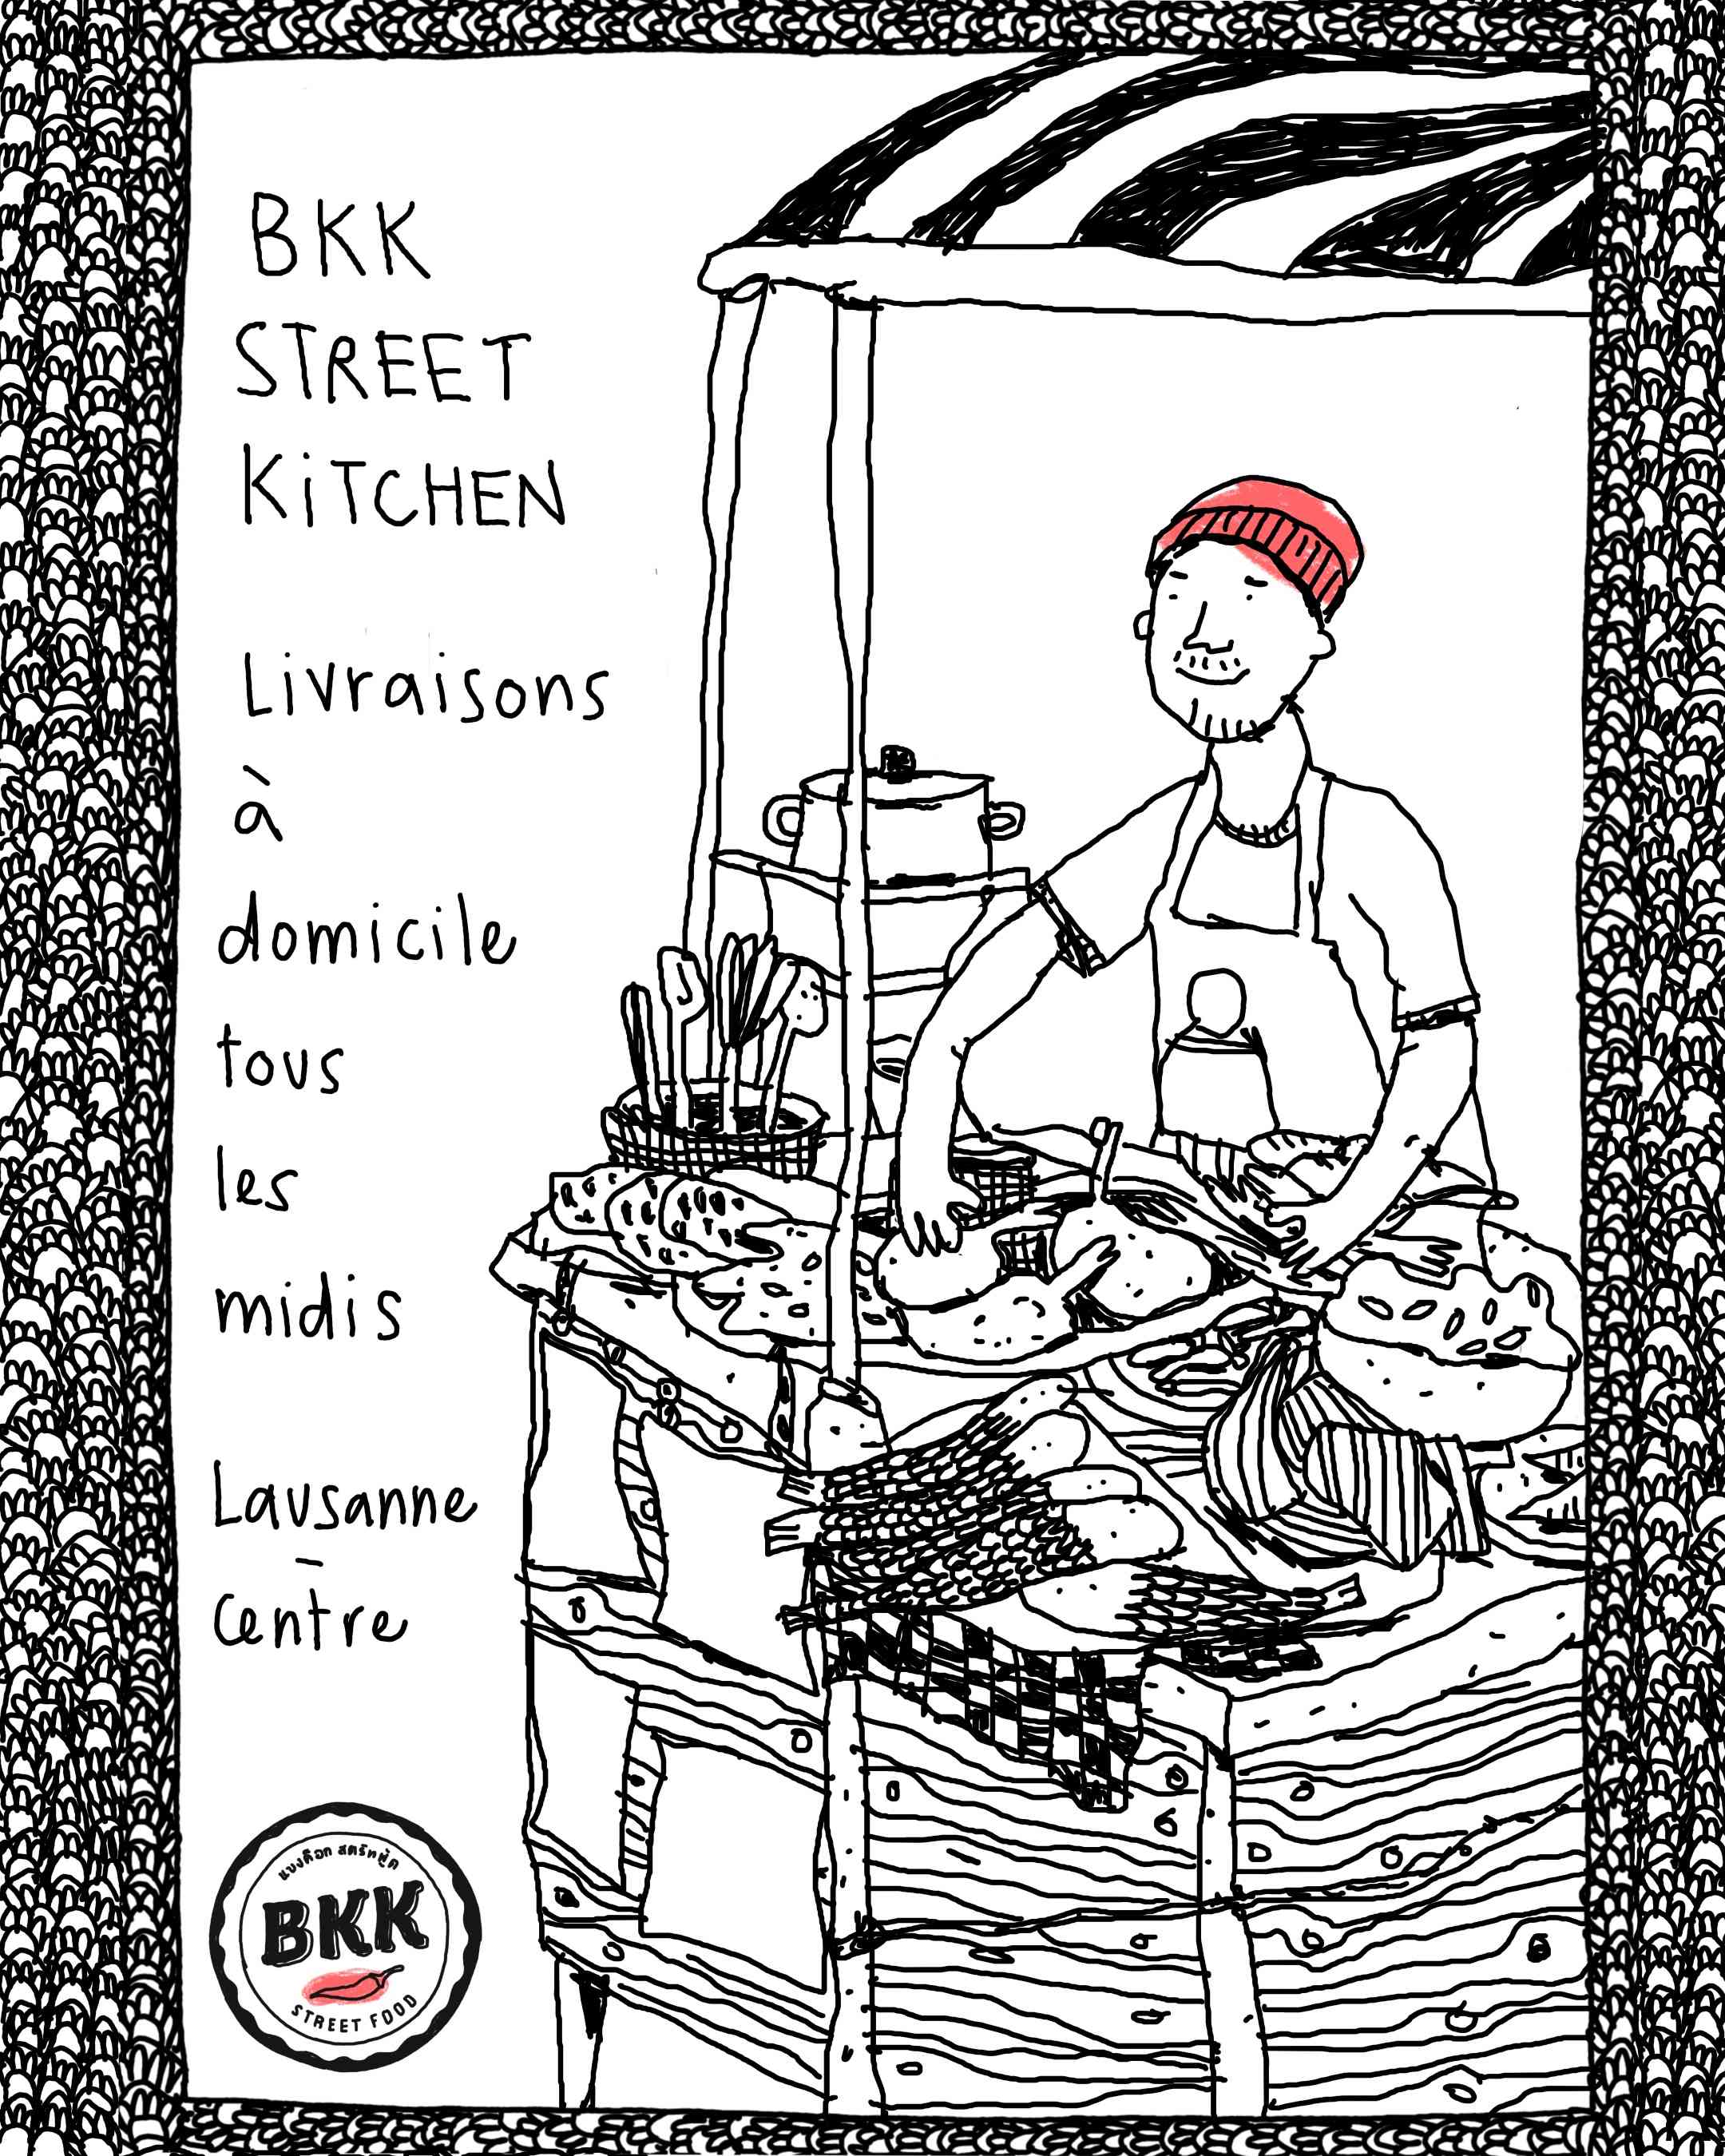 BKK
STREET
KiTCHEN
Livraisons
à
domicile
tous
les
midis
Lausanne
-
Centre
แบงค็อก สตรีทฟู้ด
BKK
STREET FOOD